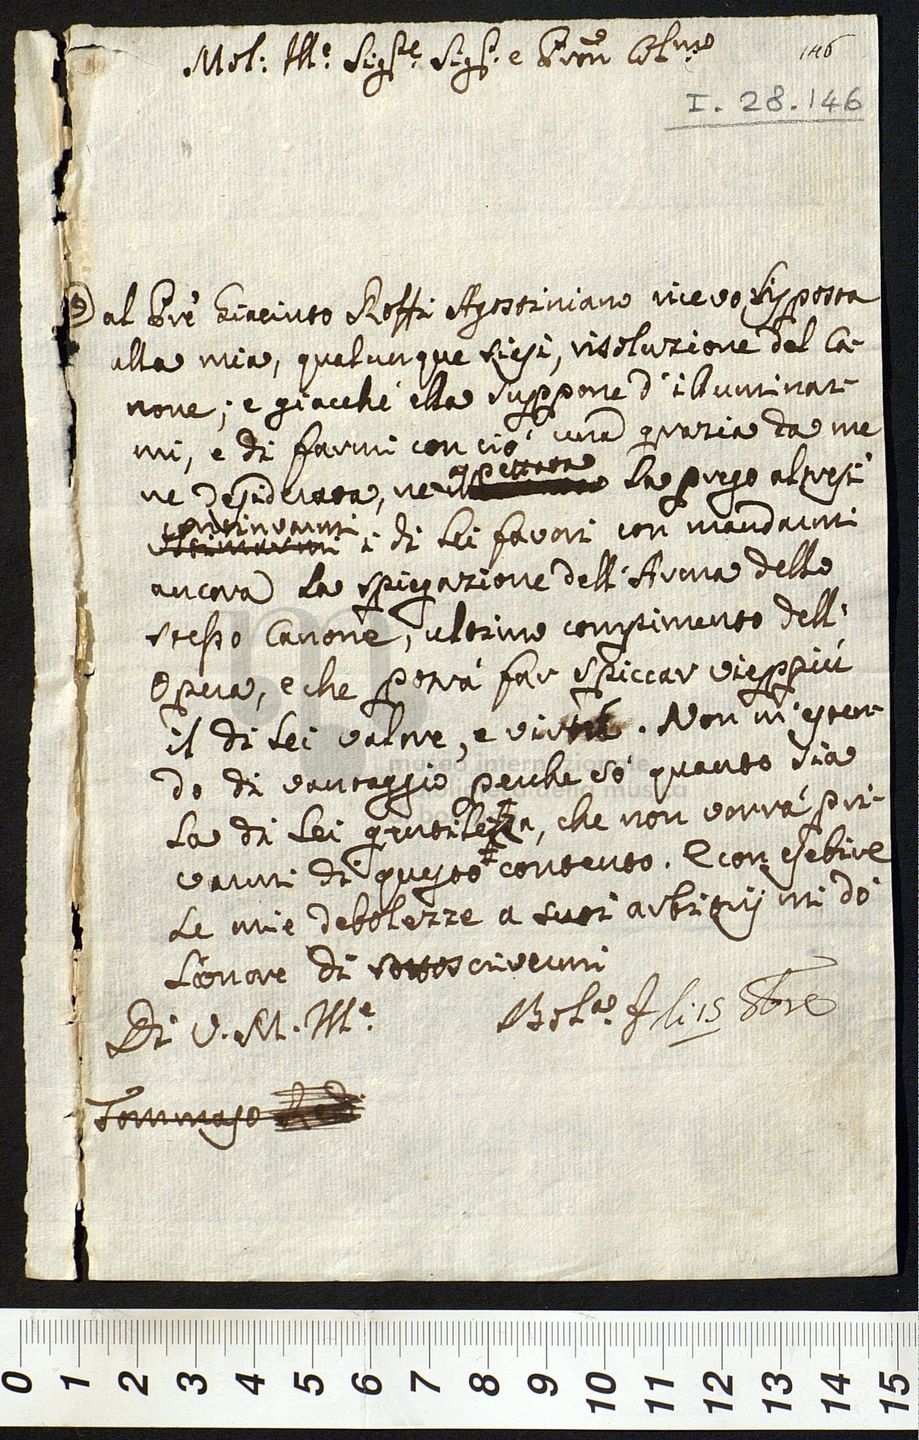 Mol: Ill.e Sig.re Sig.r e Pron Col.mo
146
I. 28. 146
Dal Pre Giacinto Roffi Agostiniano ricevo risposta
alla mia, qualunque siasi, risoluzione del Ca-
none; e giacché ella suppone d'illuminar-
mi, e di farmi con ciò una grazia da me
ne desiderata, ne aspettata la prego altresì
continuarmi i di Lei favori con mandarmi
ancora la spiegazione dell'Arma dello
stesso Canone, ultimo compimento dell'
Opera, e che potrà far spiccar vieppiù
il di Lei valore, e virtù. Non m'esten-
do di vantaggio perche sò quanto sia
la di Lei gentilezza, che non vorrà pri-
varmi di questo contento. E con esebire
le mie debolezze a suoi arbitrij mi dò
l'onore di sottoscrivermi
Di V. M. Ill.e
Bol.a li 15 8bre
Tommaso Redi
museo internazionale
e biblioteca della musica
bologna
0 1 2 3 4 5 6 7 8 9 10 11 12 13 14 15